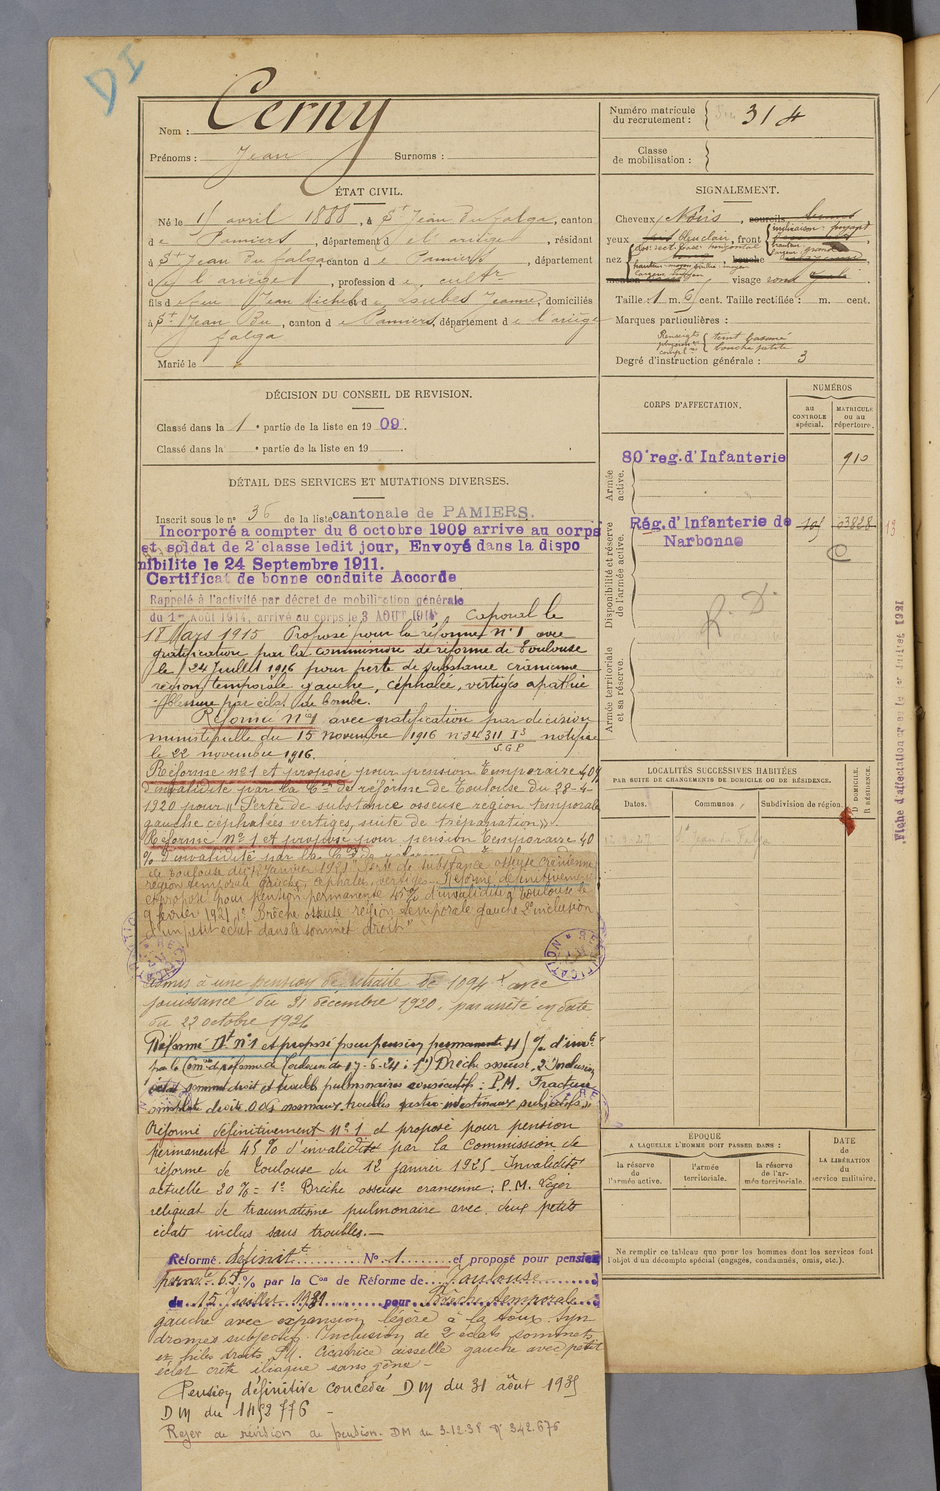 DI
Nom : Cerny
Prénoms : Jean Surnoms :
Numéro matricule du recrutement : 314
Classe de mobilisation :
ÉTAT CIVIL.
Né le 1 avril 1888, à St Jean du falga, canton
de Pamiers, département de l'ariège, résidant
à St Jean du falga canton de Pamiers, département
d l'ariège, profession de cultr
fils de feu Jean Michel et de Loubes Jeanne, domiciliés
à St Jean Du, canton de Pamiers, département de l'ariège
falga
Marié le
DÉCISION DU CONSEIL DE REVISION.
Classé dans la 1e partie de la liste en 1909.
Classé dans la e partie de la liste en 19 .
DÉTAIL DES SERVICES ET MUTATIONS DIVERSES.
Inscrit sous le no 36 de la liste cantonale de PAMIERS.
Incorporé a compter du 6 octobre 1909 arrive au corps
et soldat de 2e classe ledit jour, Envoyé dans la dispo
nibilite le 24 Septembre 1911.
Certificat de bonne conduite Accorde
Rappelé à l'activité par décret de mobilisation générale
du 1er Août 1914, arrivé au corps le 3 AOUT 1914, Caporal le
18 Mars 1915 Proposé pour la réforme n° 1 avec
gratification par la commission de réforme de Toulouse
le 24 Juillet 1916 pour perte de substance crânienne
région temporale gauche, céphalée, vertiges apathie
Blessure par éclat de bombe.
Réformé N°1 avec gratification par décision
ministérielle du 15 novembre 1916 n° 34311 I3 S.G.P notifiée
le 22 novembre 1916.
Réformé n°1 et proposé pour pension temporaire 40%
d'invalidité par la Con de réforme de Toulouse du 28-4-
1920 pour "Perte de substance osseuse région temporale
gauche céphalées vertiges, suite de trépanation".
Réformé N°1 et proposé pour pension temporaire 40
% d'invalidité par la
de Toulouse du janvier 1921 "Perte de substance osseuse crânienne
région temporale gauche, céphalées vertiges. Réformé définitivement
et proposé pour pension permanente 45% d'invalidité Toulouse le
9 février 1921 1° Brêche osseuse région temporale gauche 2° inclusion
d'un petit éclat dans le sommet droit"
admis à une pension de retraite de 1094 f avec
jouissance du 31 décembre 1920, par arrêté en date
du 22 octobre 1926
Réformé Dt n°1 et proposé pour pension permanente % d'invté
par la Comon de réforme de Toulouse du 17-6-24 : 1°) Brêche osseuse, 2° Inclusion
éclat sommet droit et troubles pulmonaires consécutifs : P.M.
troubles gastro-intestinaux subjectifs
Réformé définitivement n°1 et proposé pour pension
permanente 45% d'invalidité par la Commission de
réforme de Toulouse du 12 janvier 1925. Invalidité
actuelle 20% = 1° Brêche osseuse cranienne : P.M. Léger
reliquat de traumatisme pulmonaire avec deux petits
éclats inclus sans troubles.—
Réformé définitt No 1 et proposé pour pension
permte 65% par la Con de Réforme de Toulouse
du 15 Juillet 1931 pour Brêche temporale
gauche avec expansion légère à la toux. Syn
dromes subjectifs. Inclusion de 2 éclats sommets
et hiles droits P.M. Cicatrice aisselle gauche avec petit
éclat crête iliaque sans gêne -
Pension définitive concédée DM du 31 août 1935
DM du 1452776 -
Rejet de révision de pension. DM du 3.12.38 N° 342.676
SIGNALEMENT.
Cheveux Noirs, sourcils bruns
yeux bleu clair, front inclinaison : fuyant
hauteur : largeur grande
nez dos : rect. base : horizontal bouche
visage rond
Taille : 1 m. 61 cent. Taille rectifiée : m. cent.
Marques particulières :
Renseigts physion. complres teint basané
bouche petite
Degré d'instruction générale : 3
CORPS D'AFFECTATION.
NUMÉROS
au CONTROLE spécial.
MATRICULE ou au répertoire.
Armée active.
80e reg. d'Infanterie 910
Disponibilité et réserve de l'armée active.
Rég. d'Infanterie de 03828
Narbonne
C
R. D.
Armée territoriale et sa réserve.
Fiche d'affectation
LOCALITÉS SUCCESSIVES HABITÉES
PAR SUITE DE CHANGEMENTS DE DOMICILE OU DE RÉSIDENCE.
Dates. Communes. Subdivision de région.
D DOMICILE.
R RÉSIDENCE.
St Jean du Falga
EPOQUE
A LAQUELLE L'HOMME DOIT PASSER DANS :
la réserve de l'armée active.
l'armée territoriale.
la réserve de l'armée territoriale.
DATE DE LA LIBÉRATION du service militaire.
Ne remplir ce tableau que pour les hommes dont les services font
l'objet d'un décompte spécial (engagés, condamnés, omis, etc.).